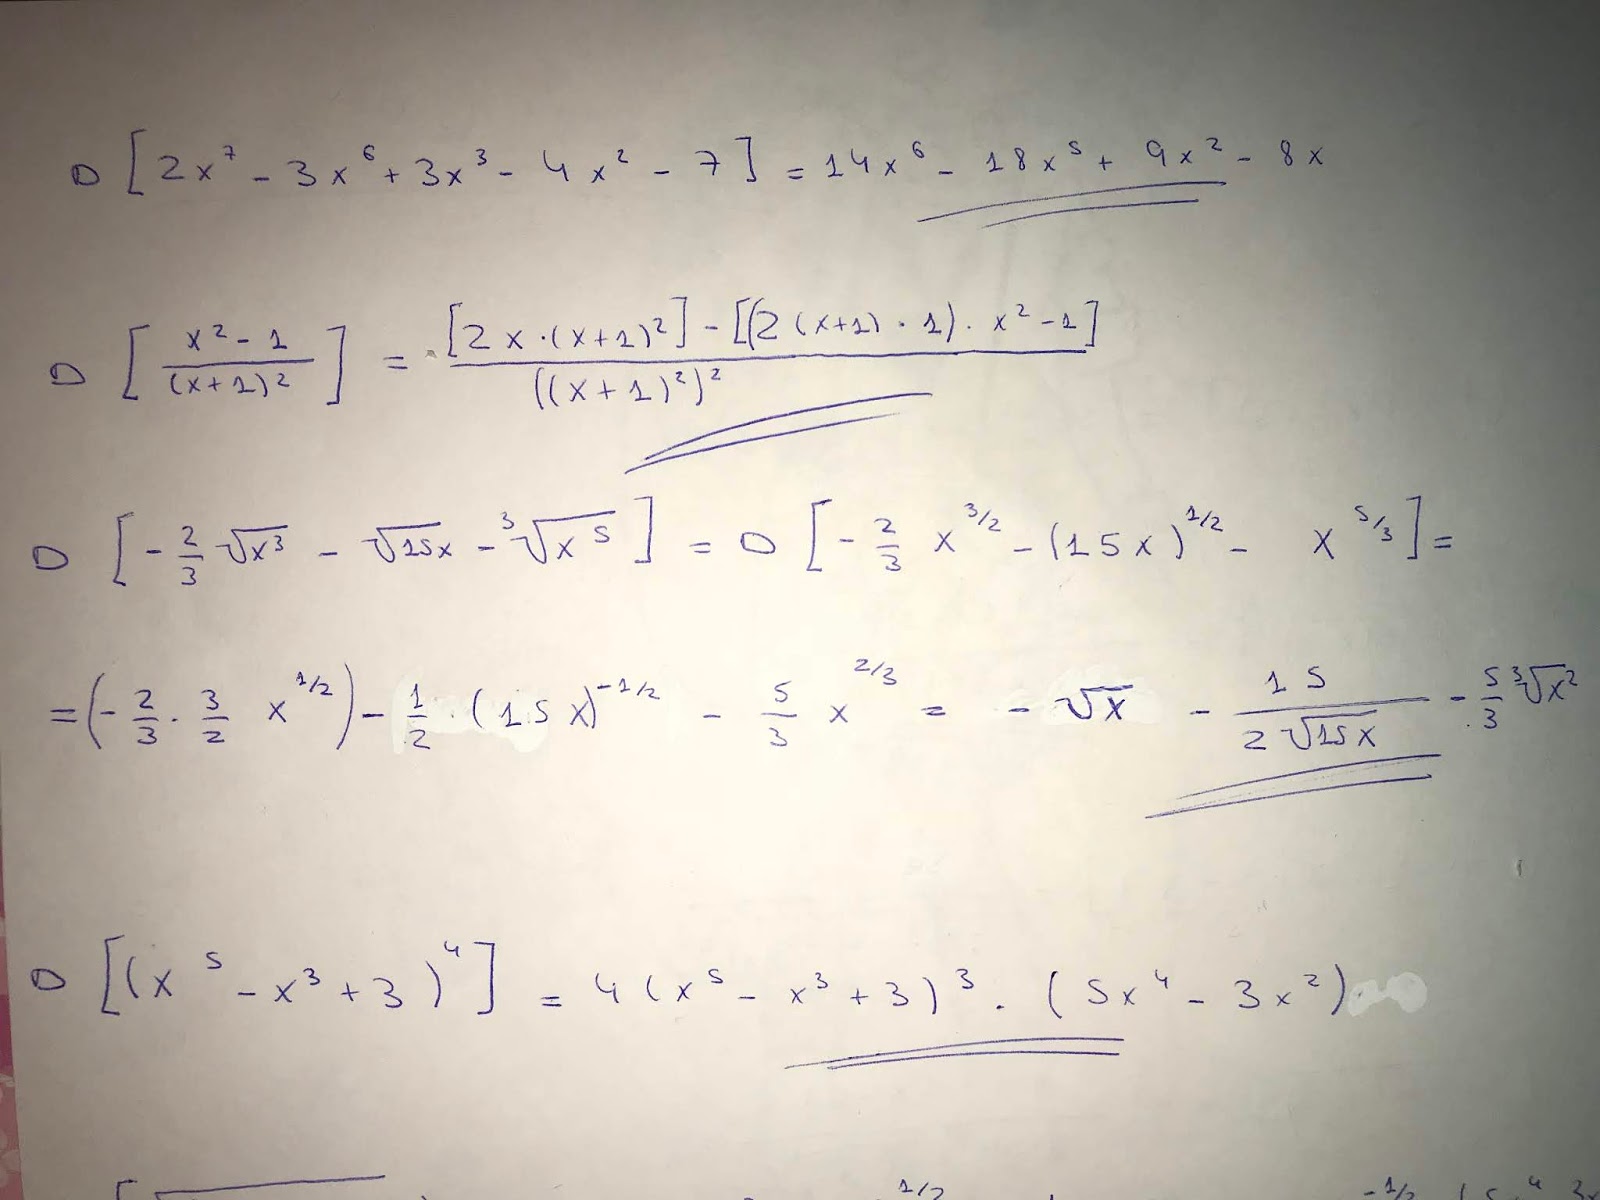 D [2x⁷ - 3x⁶ + 3x³ - 4x² - 7] = 14x⁶ - 18x⁵ + 9x² - 8x
D [(x² - 1)/(x + 1)²] = ([2x · (x+1)²] - [(2(x+1) · 1) · x² - 1])/((x + 1)²)²
D [-2/3 √x³ - √15x - ³√x⁵] = D [-2/3 x^3/2 - (15x)^1/2 - x^5/3] =
= (-2/3 · 3/2 x^1/2) - 1/2 · (15x)^-1/2 - 5/3 x^2/3 = -√x - 15/(2√15x) - 5/3 ³√x²
D [(x⁵ - x³ + 3)⁴] = 4(x⁵ - x³ + 3)³ · (5x⁴ - 3x²)